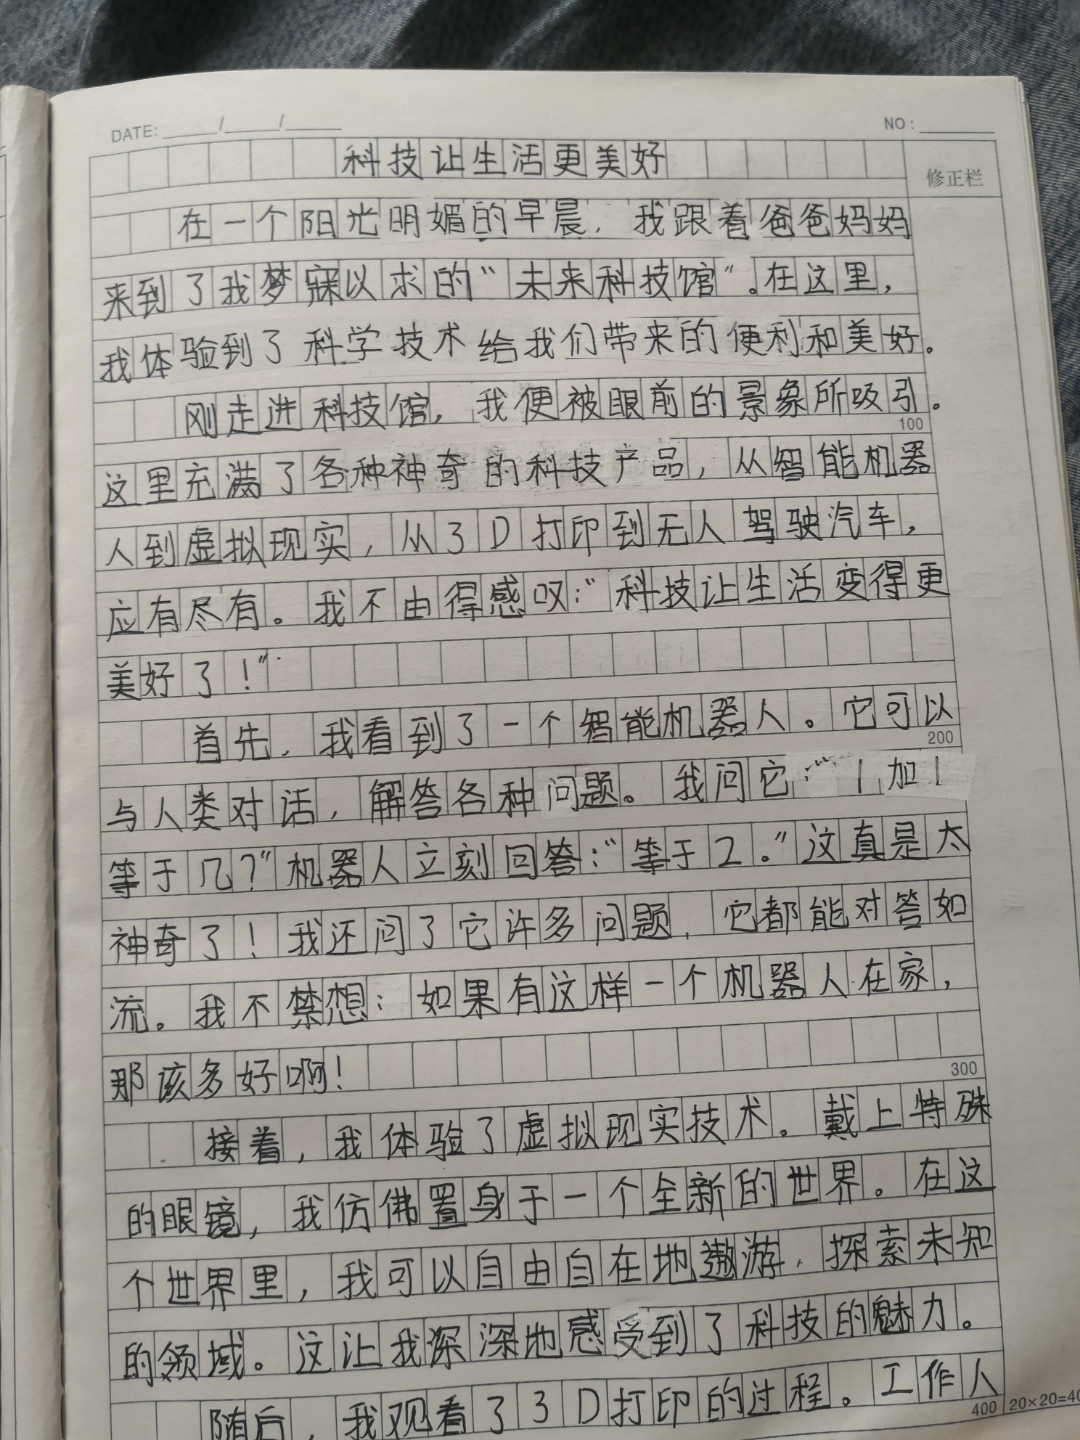 DATE: ____/____/____
NO: ______
科技让生活更美好
修正栏
在一个阳光明媚的早晨，我跟着爸爸妈妈
来到了我梦寐以求的“未来科技馆”。在这里，
我体验到了科学技术给我们带来的便利和美好。
刚走进科技馆，我便被眼前的景象所吸引。
100
这里充满了各种神奇的科技产品，从智能机器
人到虚拟现实，从3D打印到无人驾驶汽车，
应有尽有。我不由得感叹：“科技让生活变得更
美好了！”
首先，我看到了一个智能机器人。它可以
200
与人类对话，解答各种问题。我问它：“1加1
等于几？”机器人立刻回答：“等于2。”这真是太
神奇了！我还问了它许多问题，它都能对答如
流。我不禁想：如果有这样一个机器人在家，
那该多好啊！
300
接着，我体验了虚拟现实技术。戴上特殊
的眼镜，我仿佛置身于一个全新的世界。在这
个世界里，我可以自由自在地遨游，探索未知
的领域。这让我深深地感受到了科技的魅力。
随后，我观看了3D打印的过程。工作人
400
20×20=40